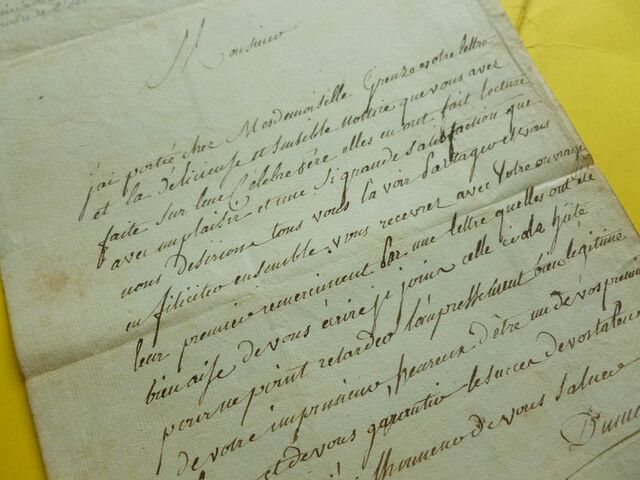 Monsieur
j'ai portée chez Mesdemoiselle Greuze votre lettre
et la délicieuse et sensible notice que vous avez
faite sur leur Célebre Père elles en ont fait lecture
avec un plaisir et une si grande satisfaction que
nous desirions tous vous la voir Partager et vous
en féliciter ensemble. vous recevrez avec Votre ouvrage
leur premier remerciment Par une lettre quelles ont été
bien aise de vous écrire j'i joins celle ci à la hâte
pour ne point retarder l'empressement bien légitime
de votre imprimeur, heureux d'être un de vos premie
et de vous garantir le succes de vos talens
l'honneur de vous saluer